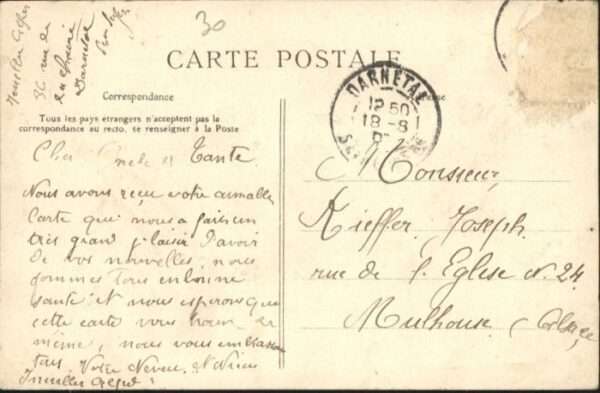 30
36 rue de
Darnetal
CARTE POSTALE
Correspondance
Tous les pays étrangers n'acceptent pas la
correspondance au recto, se renseigner à la Poste
DARNETAL
12 50
18 -8
Cher Oncle et Tante
Nous avons reçu votre aimable
Carte qui nous a fais un
très grand plaisir d'avoir
de vos nouvelles, nous
sommes tous en bonne
santé et nous esperons que
cette carte vous trouvera de
même, nous vous embrasson
tous, Votre Neveu et Nièce
Monsieur,
Kieffer Joseph
rue de l'Eglise N. 24
Mulhouse (Alsace